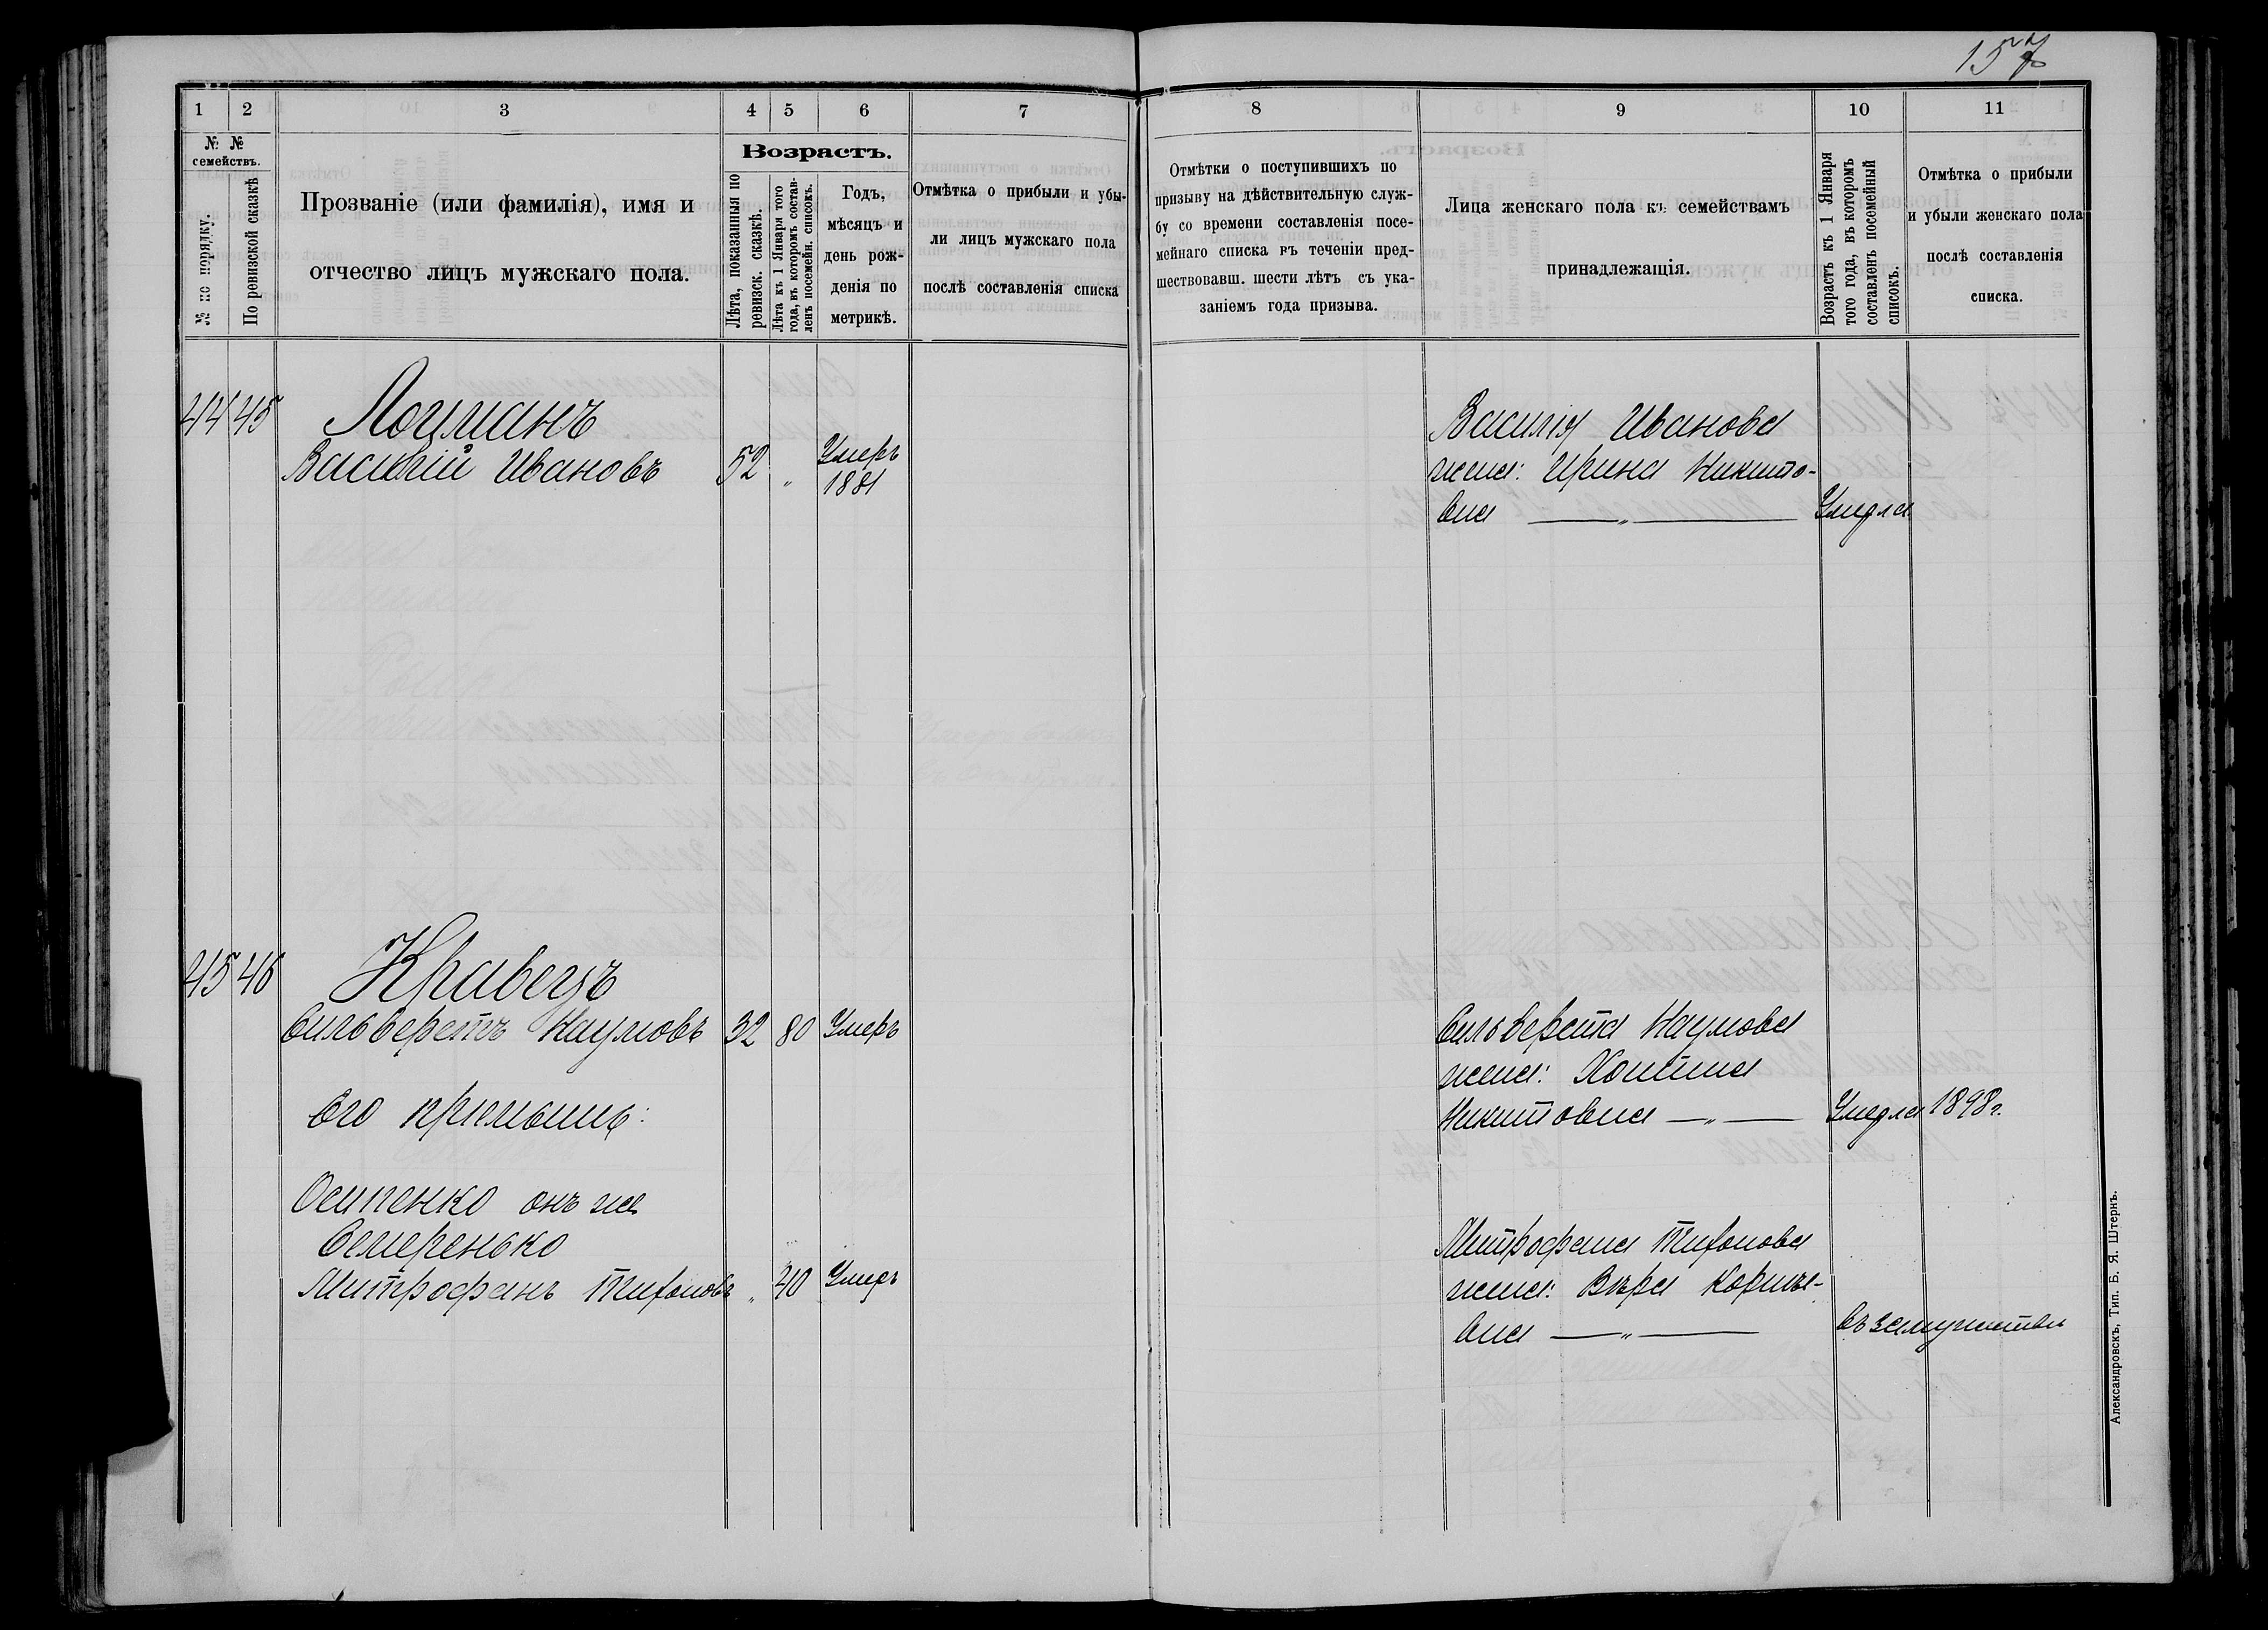 157
1
2
3
4
5
6
7
8
9
10
11
№ № семействъ.
№ по порядку.
По ревизской сказкѣ
Прозваніе (или фамилія), имя и
отчество лицъ мужскаго пола.
Возрастъ.
Лѣта, показанныя по
ревизск. сказкѣ.
Лѣта къ 1 Января того
года, въ которомъ состав-
ленъ посемейн. списокъ.
Годъ,
мѣсяцъ и
день рож-
денія по
метрикѣ.
Отмѣтка о прибыли и убы-
ли лицъ мужскаго пола
послѣ составленія списка
Отмѣтки о поступившихъ по
призыву на дѣйствительную служ-
бу со времени составленія посе-
мейнаго списка въ теченіи пред-
шествовавш. шести лѣтъ съ ука-
заніемъ года призыва.
Лица женскаго пола къ семействамъ
принадлежащія.
Возрастъ къ 1 Января
того года, въ которомъ
составленъ посемейный
списокъ.
Отмѣтка о прибыли
и убыли женскаго пола
послѣ составленія
списка.
44 45 Лоцманъ
Василій Ивановъ 52 „ Умеръ
1881
Василія Иванова
жена: Ирина Никито-
вна —„— Умерла
45 46 Кравецъ
Сильверстъ Наумовъ 32 80 Умеръ
Его приемышъ:
Осипенко онъ же
Семеренько
Митрофанъ Тихоновъ „ 40 Умеръ
Сильверста Наумова
жена: Хотина
Никитовна —„— Умерла 1898 г.
Митрофана Тихонова
жена: Вѣра Корнѣе-
вна —„— въ замужествѣ
Александровскъ, Тип. Б. Я. Штернъ.